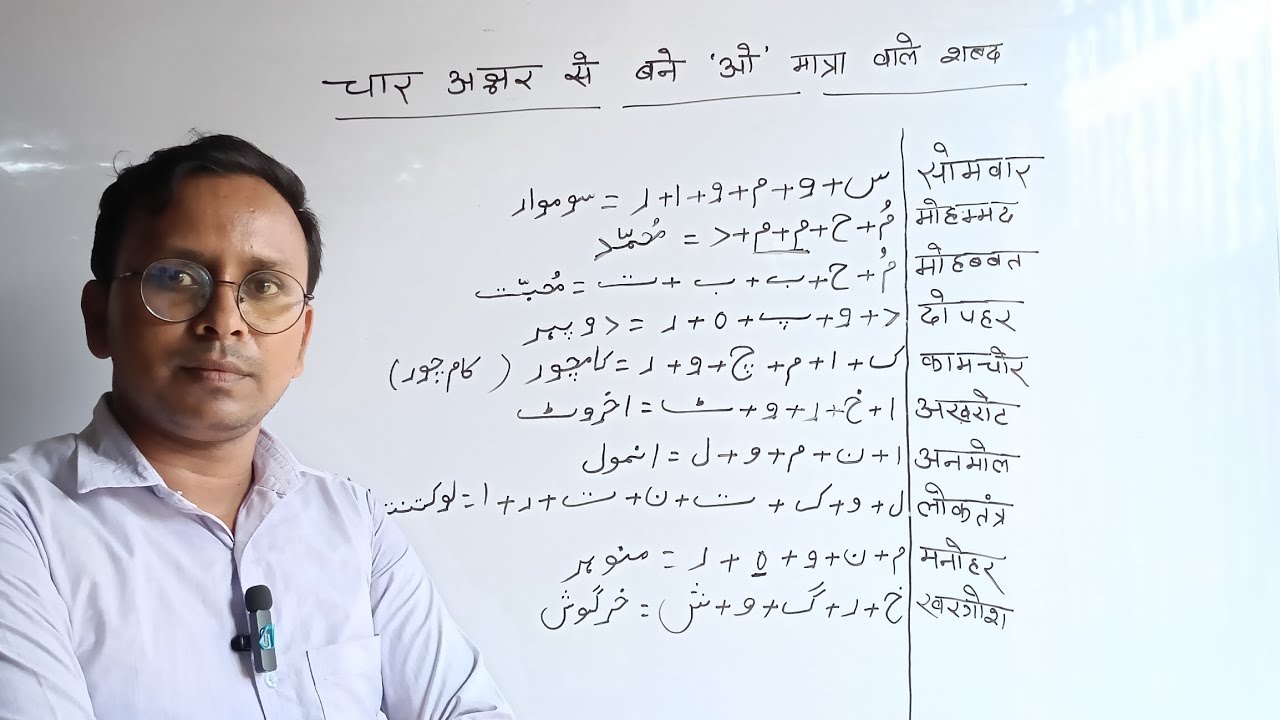 चार अक्षर से बने 'ओ' मात्रा वाले शब्द
सोमवार س+و+م+و+ا+ر = سوموار
मोहम्मद مُ+ح+م+م+د = مُحمّد
मोहब्बत مُ+ح+ب+ب+ت = مُحبّت
दोपहर د+و+پ+ہ+ر = دوپہر
कामचोर ک+ا+م+چ+و+ر = کامچور (کام چور)
अख़रोट ا+خ+ر+و+ٹ = اخروٹ
अनमोल ا+ن+م+و+ل = انمول
लोकतंत्र ل+و+ک+ت+ن+ت+ر+ا =
मनोहर م+ن+و+ہ+ر = منوہر
खरगोश خ+ر+گ+و+ش = خرگوش